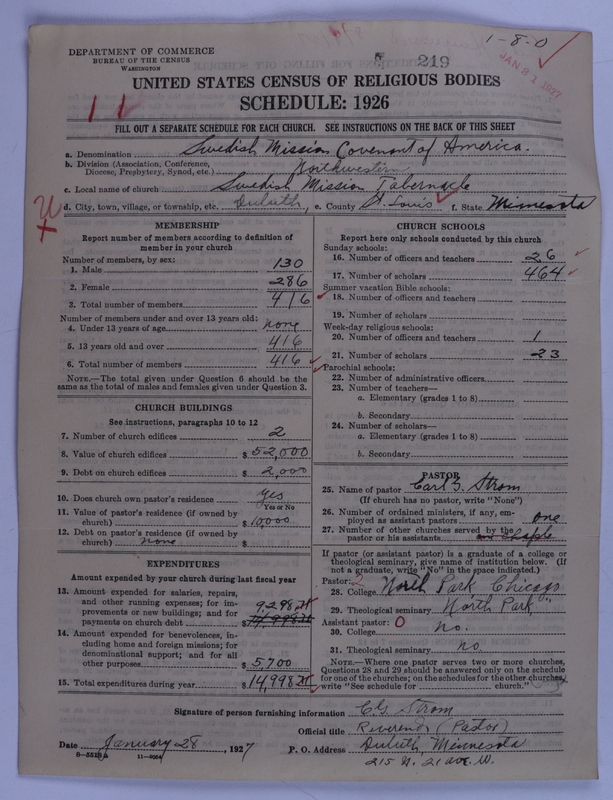 1-8-0
219
JAN 31 1927
DEPARTMENT OF COMMERCE
BUREAU OF THE CENSUS
WASHINGTON
UNITED STATES CENSUS OF RELIGIOUS BODIES
SCHEDULE: 1926
FILL OUT A SEPARATE SCHEDULE FOR EACH CHURCH. SEE INSTRUCTIONS ON THE BACK OF THIS SHEET
a. Denomination Swedish Mission Covenant of America.
b. Division (Association, Conference, Diocese, Presbytery, Synod, etc.) Northwestern
c. Local name of church Swedish Mission Tabernacle
d. City, town, village, or township, etc. Duluth, e. County St. Louis f. State Minnesota
MEMBERSHIP
Report number of members according to definition of
member in your church
Number of members, by sex:
1. Male 130
2. Female 286
3. Total number of members 416
Number of members under and over 13 years old:
4. Under 13 years of age none
5. 13 years old and over 416
6. Total number of members 416
NOTE.—The total given under Question 6 should be the
same as the total of males and females given under Question 3.
CHURCH BUILDINGS
See instructions, paragraphs 10 to 12
7. Number of church edifices 2
8. Value of church edifices $ 52,000
9. Debt on church edifices $ 2,000
10. Does church own pastor's residence yes
Yes or No
11. Value of pastor's residence (if owned by
church) $ 10,000
12. Debt on pastor's residence (if owned by
church) none $
EXPENDITURES
Amount expended by your church during last fiscal year
13. Amount expended for salaries, repairs,
and other running expenses; for im-
provements or new buildings; and for
payments on church debt $ 9,298
14. Amount expended for benevolences, in-
cluding home and foreign missions; for
denominational support; and for all
other purposes $ 5,700
15. Total expenditures during year $ 14,998
CHURCH SCHOOLS
Report here only schools conducted by this church
Sunday schools:
16. Number of officers and teachers 26
17. Number of scholars 464
Summer vacation Bible schools:
18. Number of officers and teachers
19. Number of scholars
Week-day religious schools:
20. Number of officers and teachers 1
21. Number of scholars 23
Parochial schools:
22. Number of administrative officers
23. Number of teachers—
a. Elementary (grades 1 to 8)
b. Secondary
24. Number of scholars—
a. Elementary (grades 1 to 8)
b. Secondary
PASTOR
25. Name of pastor Carl G. Strom
(If church has no pastor, write "None")
26. Number of ordained ministers, if any, em-
ployed as assistant pastors one
27. Number of other churches served by the
pastor or his assistants chaple
If pastor (or assistant pastor) is a graduate of a college or
theological seminary, give name of institution below. (If
not a graduate, write "No" in the space indicated.)
Pastor: 2
28. College North Park Chicago
29. Theological seminary North Park, "
Assistant pastor: 0
30. College no.
31. Theological seminary no
NOTE.—Where one pastor serves two or more churches,
Questions 28 and 29 should be answered only on the schedule
for one of the churches; on the schedules for the other churches
write "See schedule for church."
Signature of person furnishing information C.G. Strom
Official title Reverend (Pastor)
Date January 28, 1927 P. O. Address Duluth, Minnesota
215 N. 21 ave. W.